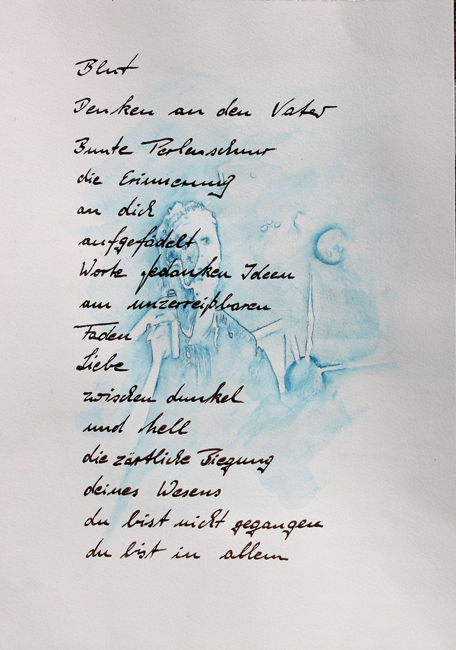 Blut
Denken an den Vater
Bunte Perlenschnur
die Erinnerung
an dich
aufgefädelt
Worte Gedanken Ideen
am unzerreißbaren
Faden
Liebe
zwischen dunkel
und hell
die zärtliche Biegung
deines Wesens
du bist nicht gegangen
du bist in allem